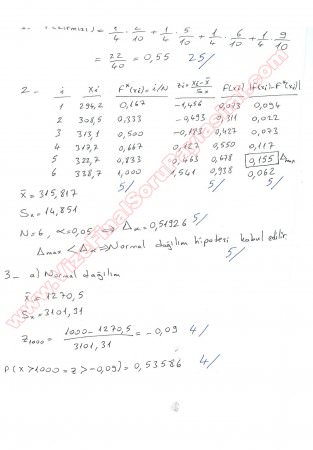 = 2/4 . 2/10 + 1/4 . 5/10 + 1/4 . 6/10 + 1/4 . 9/10
= 22/40 = 0,55 25/
2- i xi F*(xi)=i/N zi=xi-x̄/Sx F(xi) |F(xi)-F*(xi)|
1 294,2 0,167 -1,456 0,073 0,094
2 308,5 0,333 -0,493 0,311 0,022
3 313,1 0,500 -0,183 0,427 0,073
4 317,7 0,667 0,127 0,550 0,117
5 322,7 0,833 0,463 0,678 0,155 Δmax
6 338,7 1,000 1,541 0,938 0,062
5/ 5/ 5/
x̄ = 315,817
Sx = 14,851
N=6, α=0,05 ⇒ Δα = 0,51926 5/
Δmax < Δα ⇒ Normal dağılım hipotezi kabul edilir
5/
3- a) Normal dağılım
x̄ = 1270,5
Sx = 3101,31
z1000 = 1000-1270,5/3101,31 = -0,09 4/
P(X>1000 = z>-0,09) = 0,53586 4/
www.VizeFinalSoruPaylasimi.Com